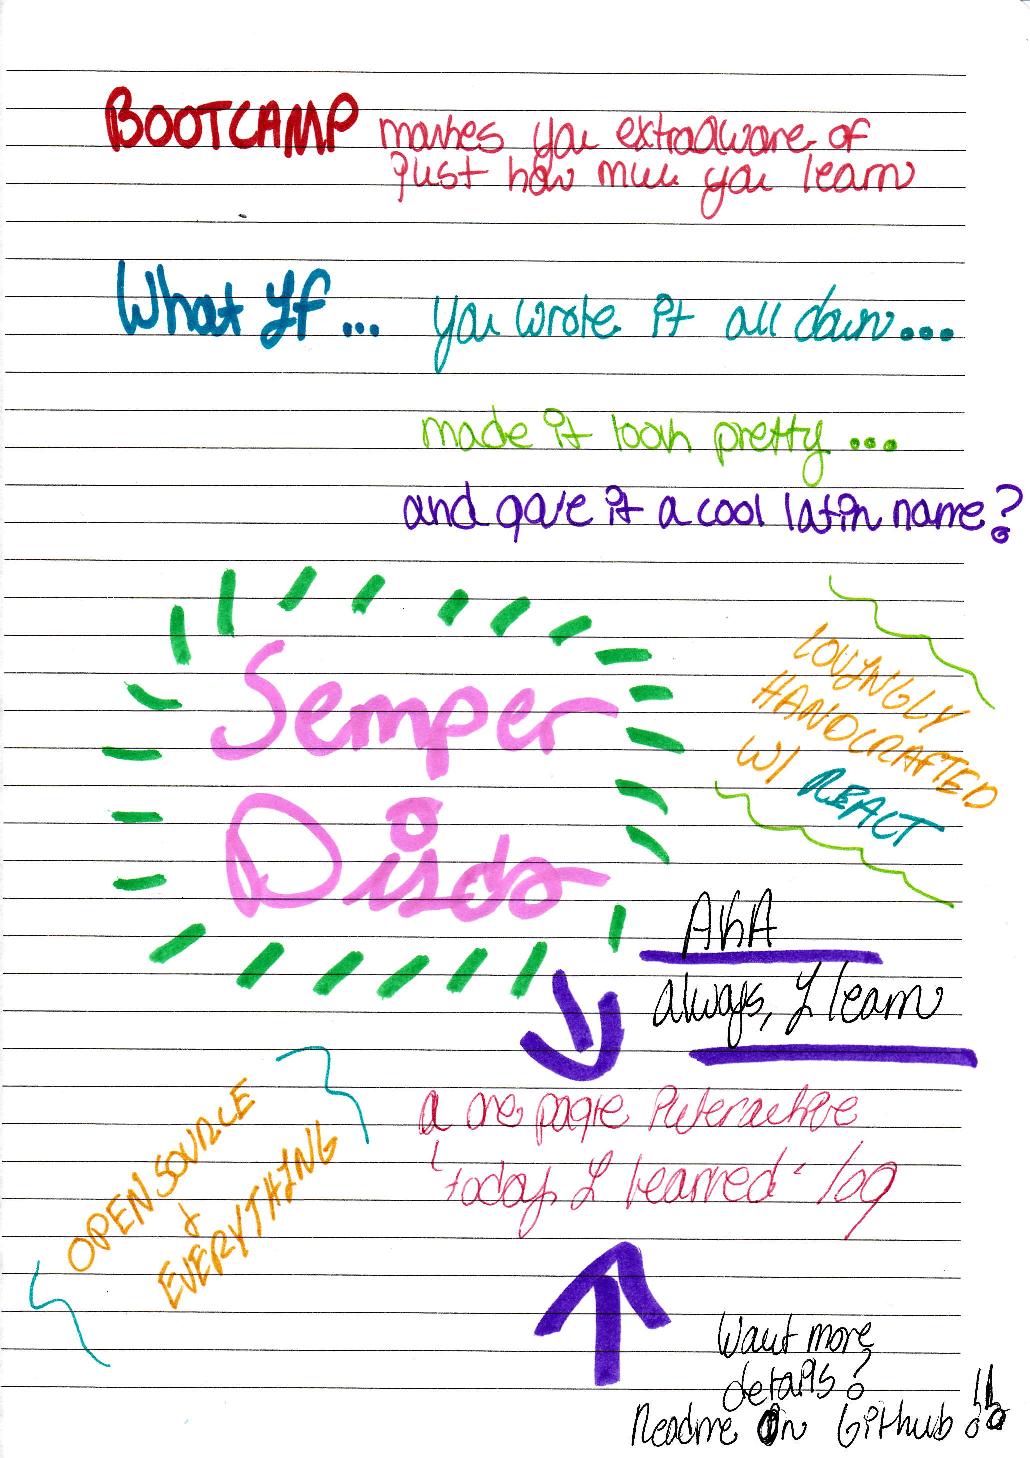 BOOTCAMP makes you extra aware of
just how much you learn
What If... you wrote it all down...
made it look pretty...
and gave it a cool latin name?
Semper
Disco
LOVINGLY
HANDCRAFTED
W/ REACT
AKA
always, I learn
a one page interactive
"today I learned" log
OPEN SOURCE
&
EVERYTHING
Want more
details?
Readme on Github!!